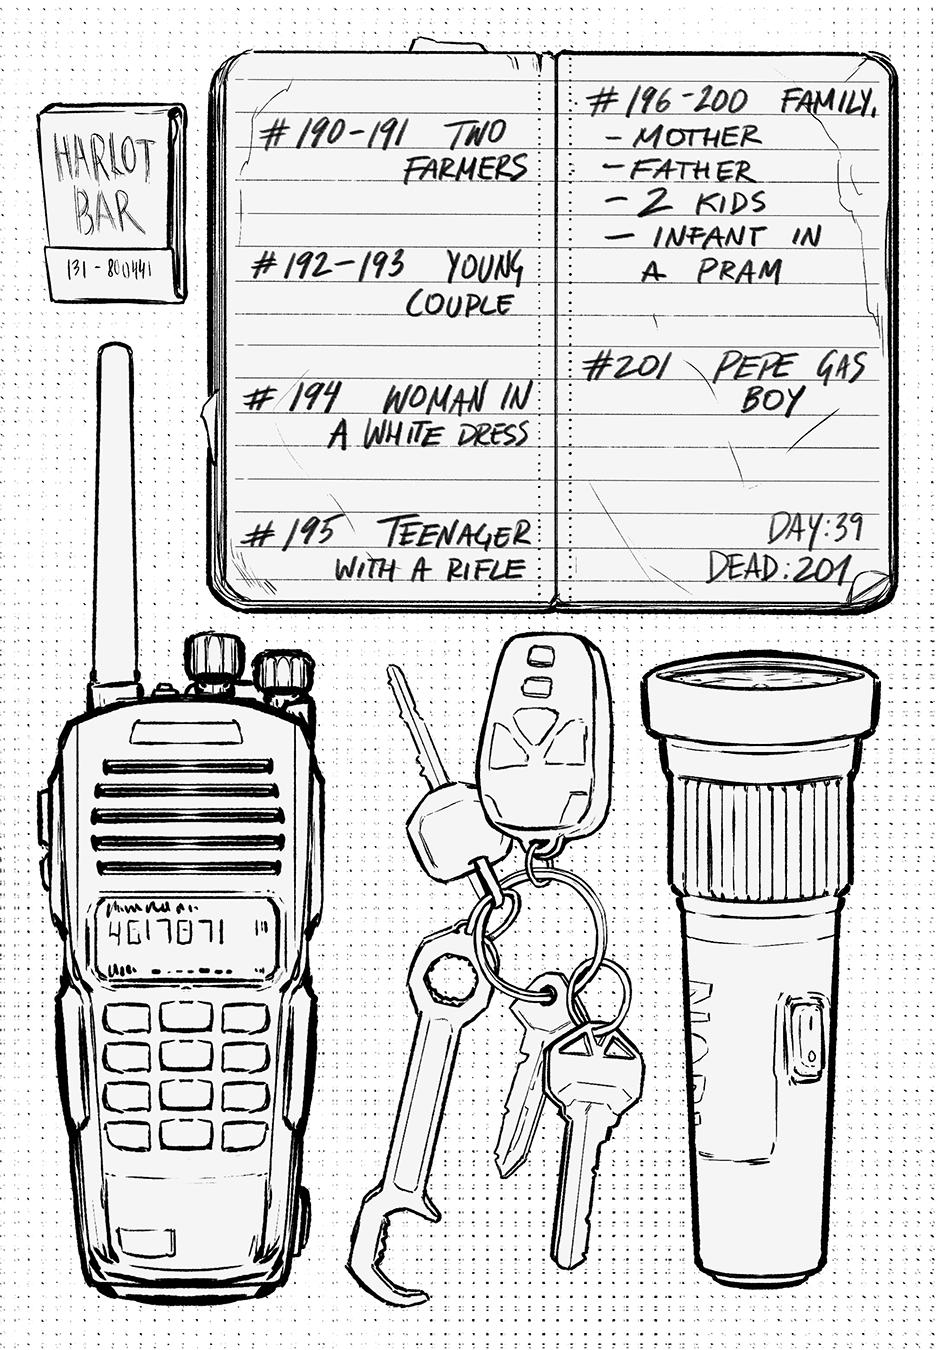 HARLOT
BAR
131-800441
#190-191 TWO
FARMERS
#192-193 YOUNG
COUPLE
#194 WOMAN IN
A WHITE DRESS
#195 TEENAGER
WITH A RIFLE
#196-200 FAMILY.
- MOTHER
- FATHER
- 2 KIDS
- INFANT IN
A PRAM
#201 PEPE GAS
BOY
DAY:39
DEAD:201